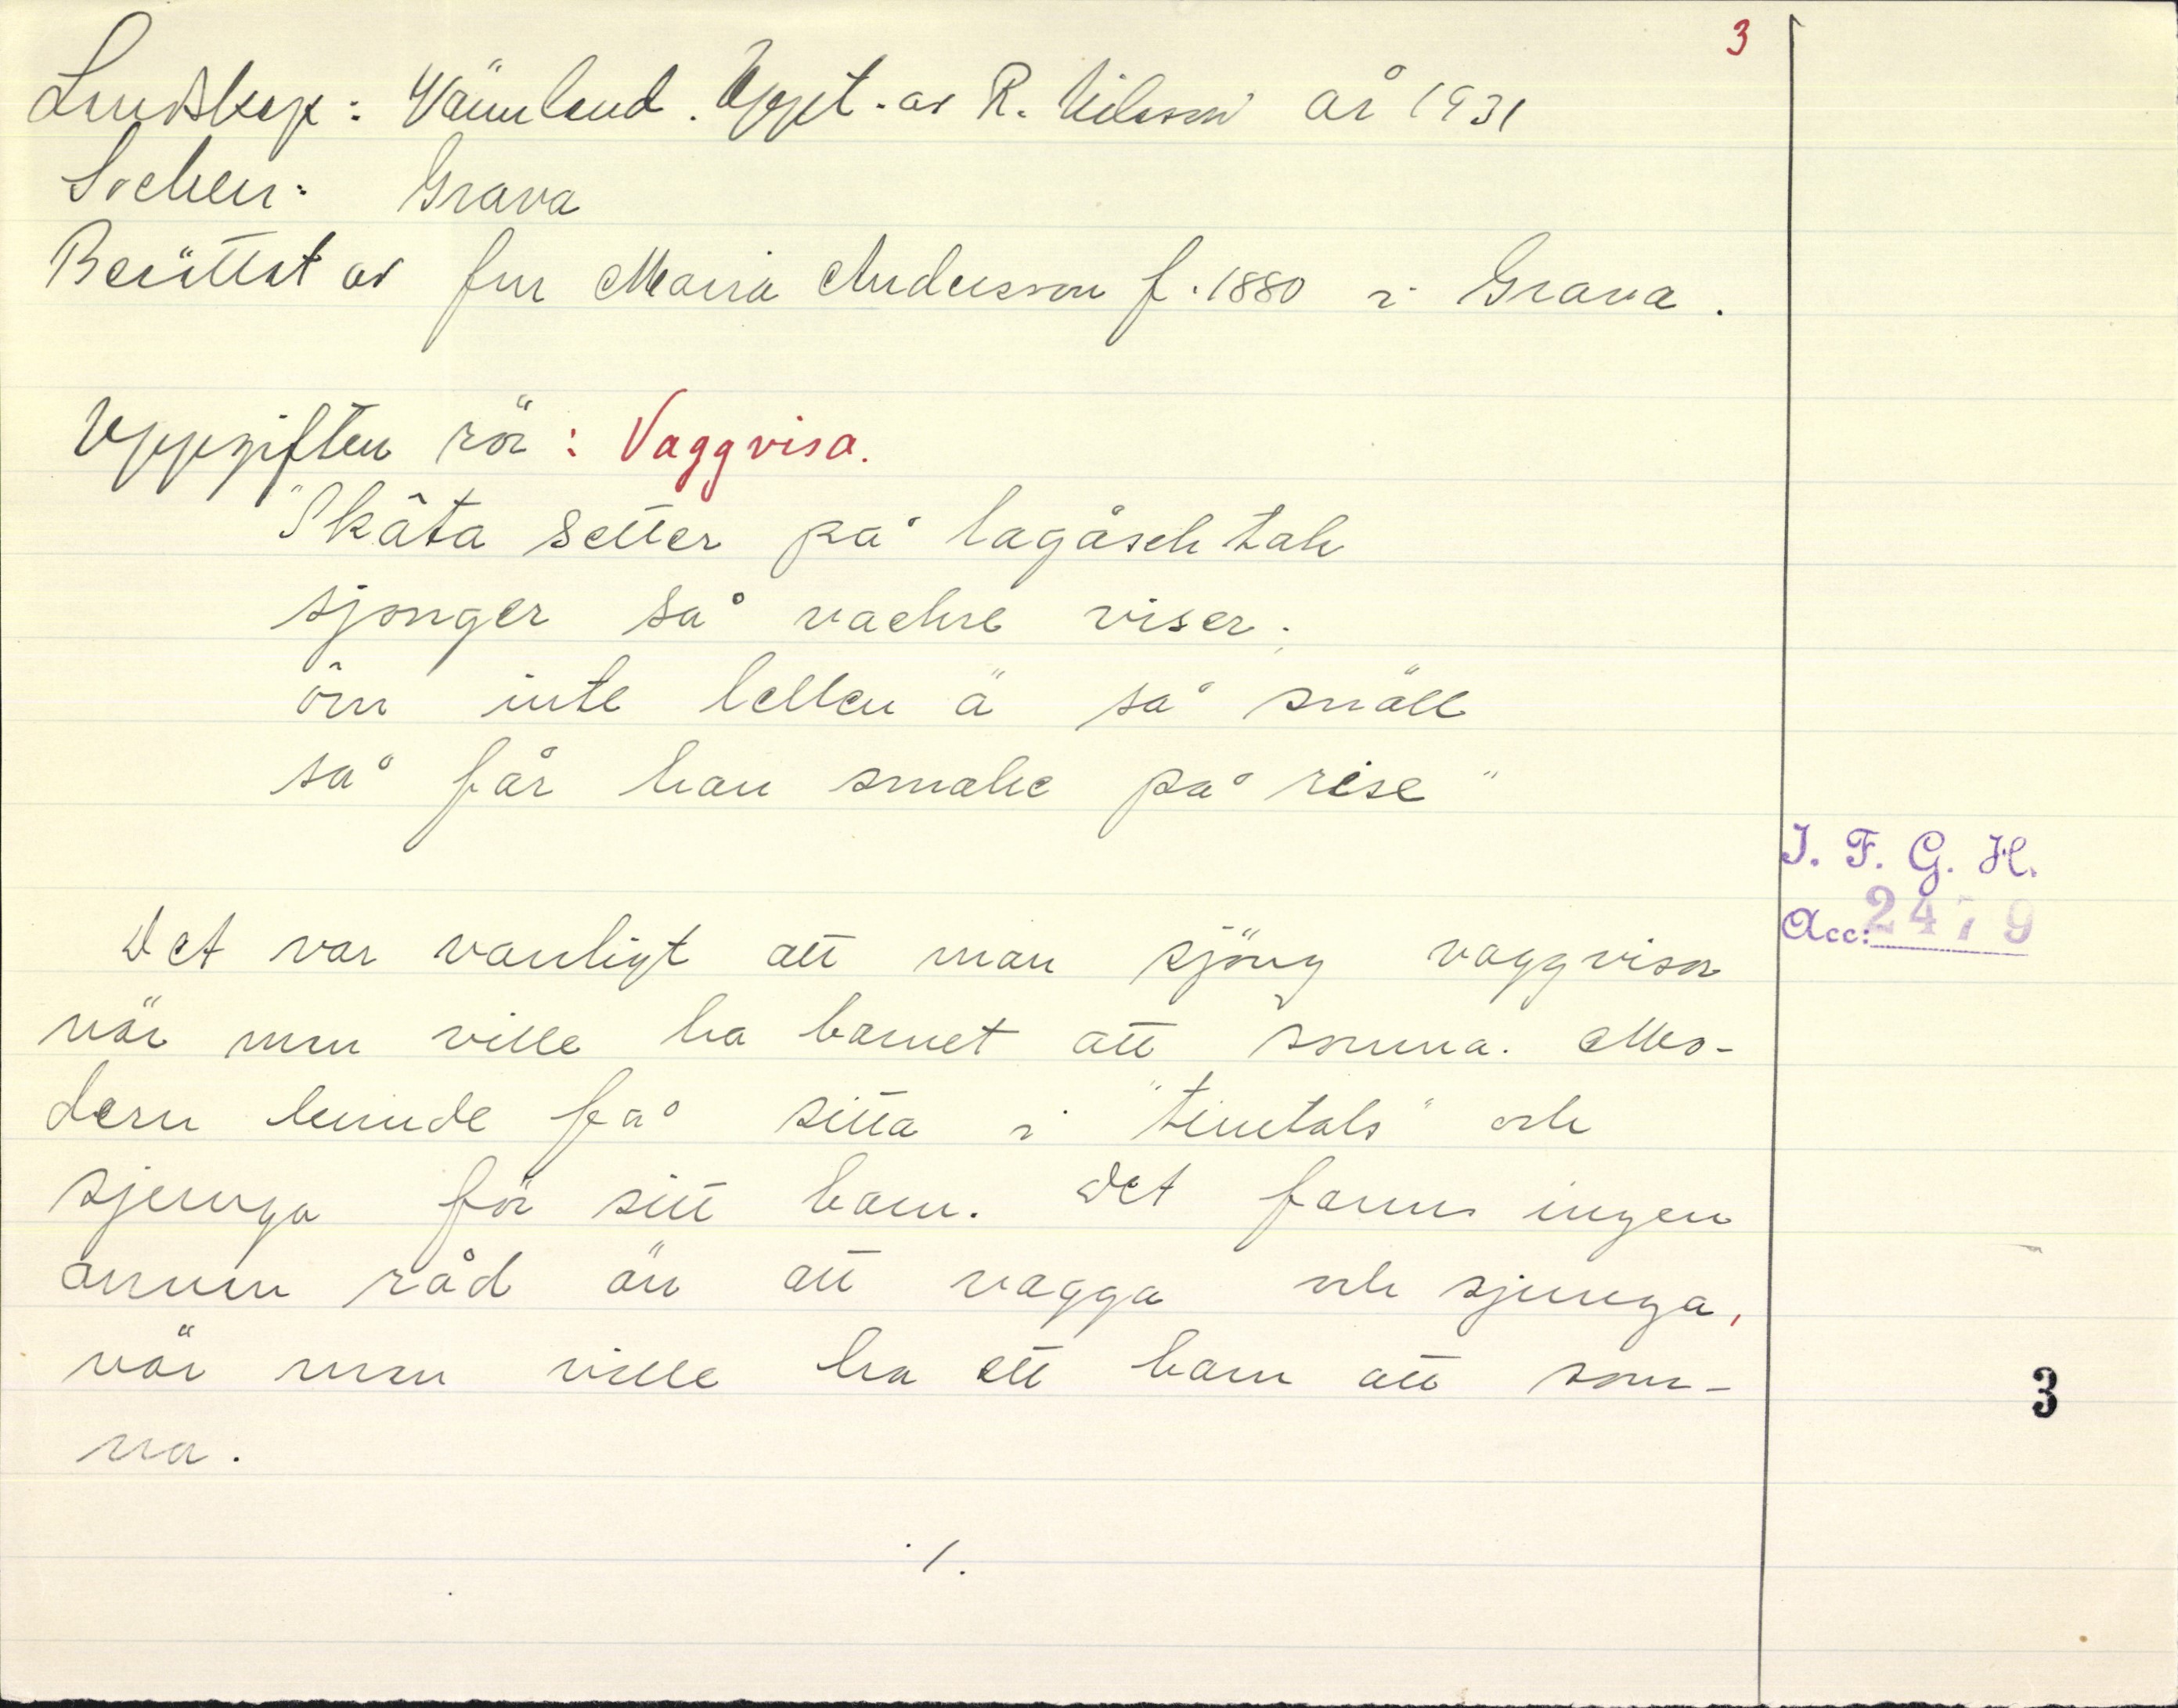 3
Landskap: Värmland. Uppt. av R. Nilsson år 1931
Socken: Grava
Berättat av fru Maria Andersson f. 1880 i Grava.
Uppgiften rör: Vaggvisa.
"Skâta setter på lagåsek tak
sjonger så vackre viser;
ôm inte lellen ä så snäll
så får han smake på rise"
I. F. G. H.
Acc: 2479
Det var vanligt att man sjöng vaggvisor
när man ville ha barnet att somna. Mo-
dern kunde få sitta i "timtals" och
sjunga för sitt barn. Det fanns ingen
annan råd än att vagga och sjunga,
när man ville ha ett barn att som-
na.
3
./.